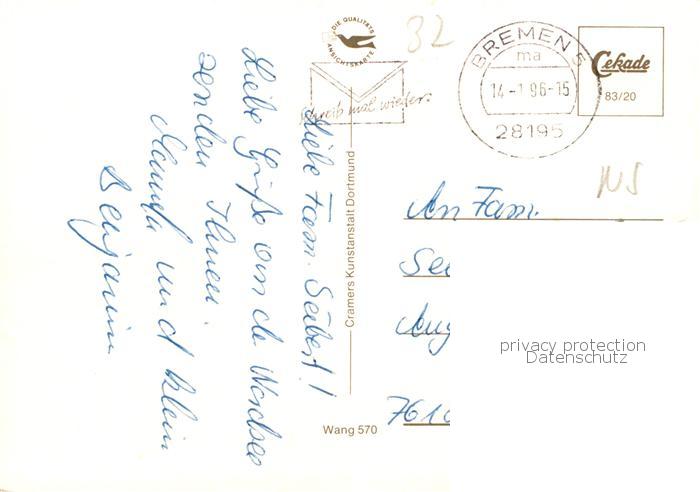 DIE QUALITÄTS
ANSICHTSKARTE
32
Schreib mal wieder.
BREMEN 5
ma
14-1.96-15
28195
Cekade
83/20
NS
Liebe Fam. Seibert!
Liebe Grüße von der Nordsee
senden Ihnen
und Klein
Benjamin
Cramers Kunstanstalt Dortmund
Wang 570
An Fam.
Sei
Aug
7610
privacy protection
Datenschutz